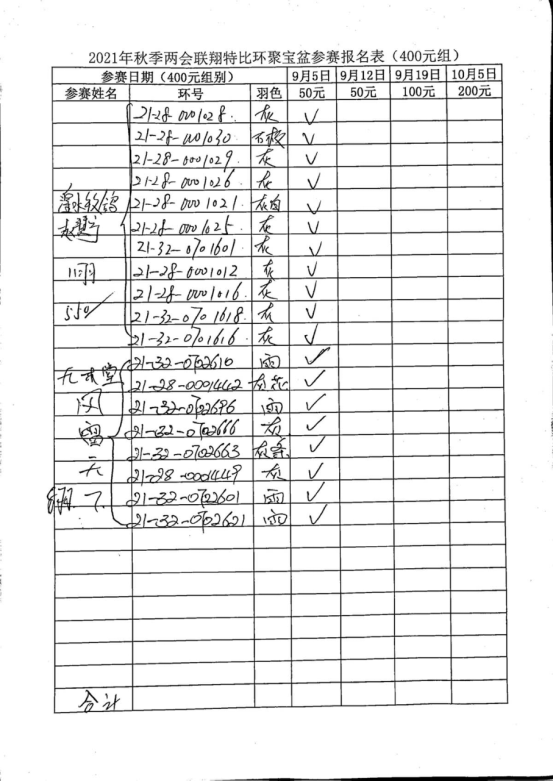 2021年秋季两会联翔特比环聚宝盆参赛报名表（400元组）
参赛日期（400元组别） 9月5日 9月12日 9月19日 10月5日
参赛姓名 环号 羽色 50元 50元 100元 200元
21-28-0001028 灰 ✓
21-28-0001030 ✓
21-28-0001029 灰 ✓
21-28-0001026 灰 ✓
21-28-0001021 灰白 ✓
21-28-0001025 灰 ✓
21-32-0701601 灰 ✓
11羽 21-28-0001012 灰 ✓
21-28-0001016 灰 ✓
550 21-32-0701618 灰 ✓
21-32-0701616 灰 ✓
21-32-0702610 雨 ✓
21-28-0001442 灰花 ✓
21-32-0702696 雨 ✓
雷 21-32-0702666 灰 ✓
21-32-0702663 ✓
天 21-28-0001449 灰 ✓
8羽 下 21-32-0702601 雨 ✓
21-32-0702621 雨 ✓
合计